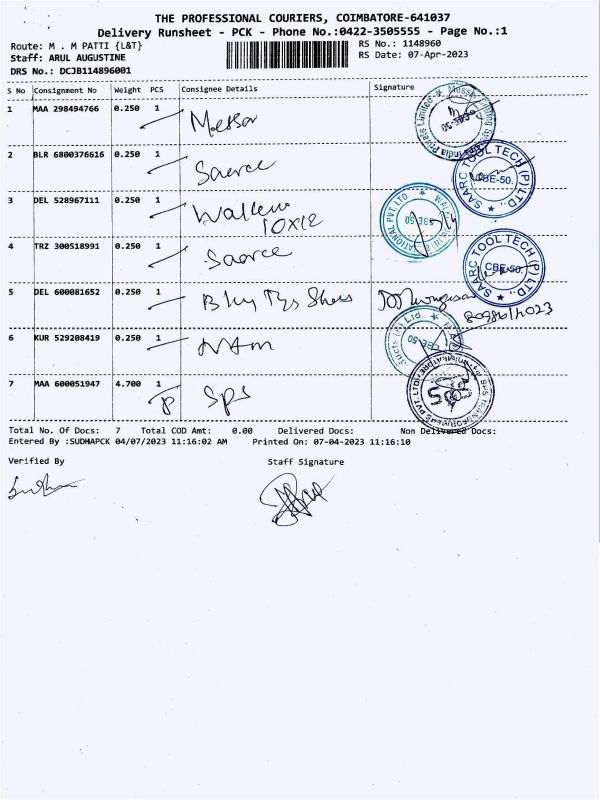 THE PROFESSIONAL COURIERS, COIMBATORE-641037
Delivery Runsheet - PCK - Phone No.:0422-3505555 - Page No.:1
Route: M . M PATTI {L&T}
RS No.: 1148960
Staff: ARUL AUGUSTINE
RS Date: 07-Apr-2023
DRS No.: DCJB114896001
S No Consignment No Weight PCS Consignee Details Signature
1 MAA 298494766 0.250 1
2 BLR 6800376616 0.250 1
SAARC TOOL TECH (P) LTD.,
CBE-50.
3 DEL 528967111 0.250 1
10x12
CBE-50
4 TRZ 300518991 0.250 1
SAARC TOOL TECH (P) LTD.,
CBE-50.
5 DEL 600081652 0.250 1
6 KUR 529208419 0.250 1
CBE-50
7 MAA 600051947 4.700 1 P Sps
Total No. Of Docs: 7 Total COD Amt: 0.00 Delivered Docs: Non Delivered Docs:
Entered By :SUDHAPCK 04/07/2023 11:16:02 AM Printed On: 07-04-2023 11:16:10
Verified By Staff Signature